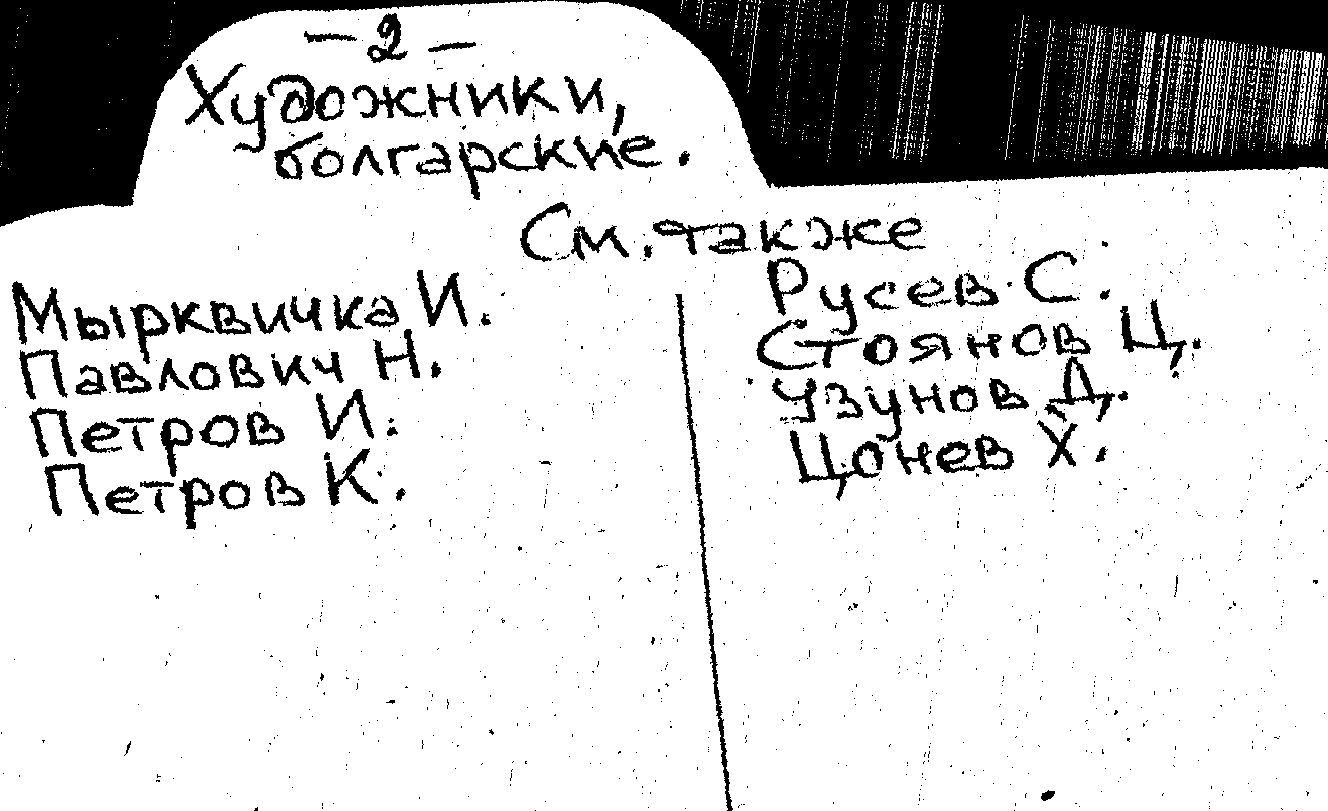 — 2 —
Художники,
болгарские.
См. также
Мырквичка И.
Павлович Н.
Петров И.
Петров К.
Русев С.
Стоянов Ц.
Узунов Д.
Цонев Х.